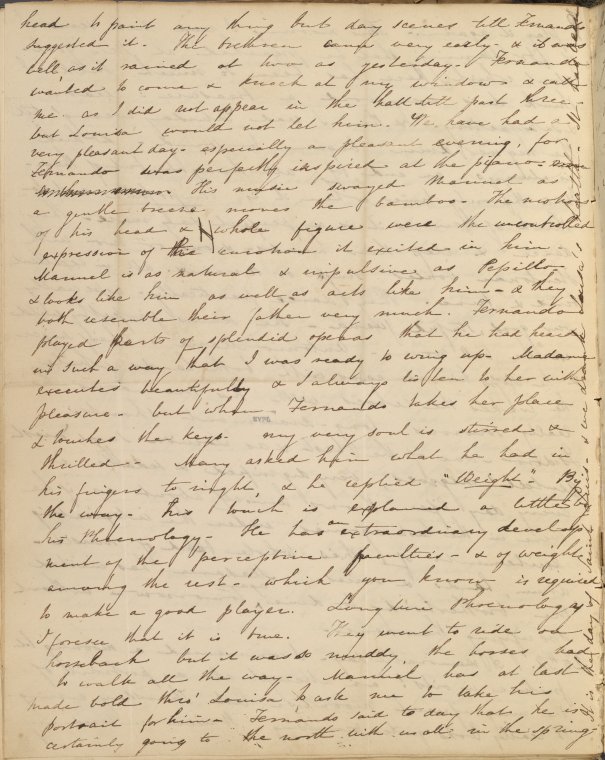 head to paint any thing but day scenes till Fernando
suggested it. The brethren came very early - & it was
well as it rained at two as yesterday. Fernando
wanted to come & knock at my window & call
me as I did not appear in the hall till past three -
but Louisa would not let him. We have had a
very pleasant day - especially a pleasant evening, for
Fernando was perfectly inspired at the piano -
His music swayed Manuel as
a gentle breeze moves the bamboo. The motions
of his head & whole figure were the uncontrolled
expression of the emotion it excited in him -
Manuel is as natural & impulsive as Pepillo
& looks like him as well as acts like him - & they
both resemble their father very much. Fernando
played parts of splendid operas that he had heard
in such a way that I was ready to wing up - Madame
executes beautifully & I always listen to her with
pleasure - but when Fernando takes her place
& touches the keys - my very soul is stirred &
thrilled - Mary asked him what he had in
his fingers to night, & he replied "Weight". By
the way - his touch is explained a little by
his Phrenology - He has an extraordinary develop
ment of the perceptive faculties - & of weight
among the rest - which you know is required
to make a good player. Long live Phrenology
I foresee that it is true. They went to ride on
horseback but it was so muddy the horses had
to walk all the way - Manuel has at last
made bold thro' Louisa to ask me to take his
portrait for him - Fernando said to day that he is
certainly going to the north with us all in the spring -
It is the day of Saint & we drank Louisa's health -